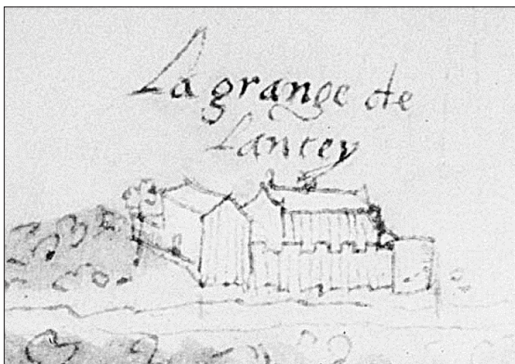 La grange de
Lancey